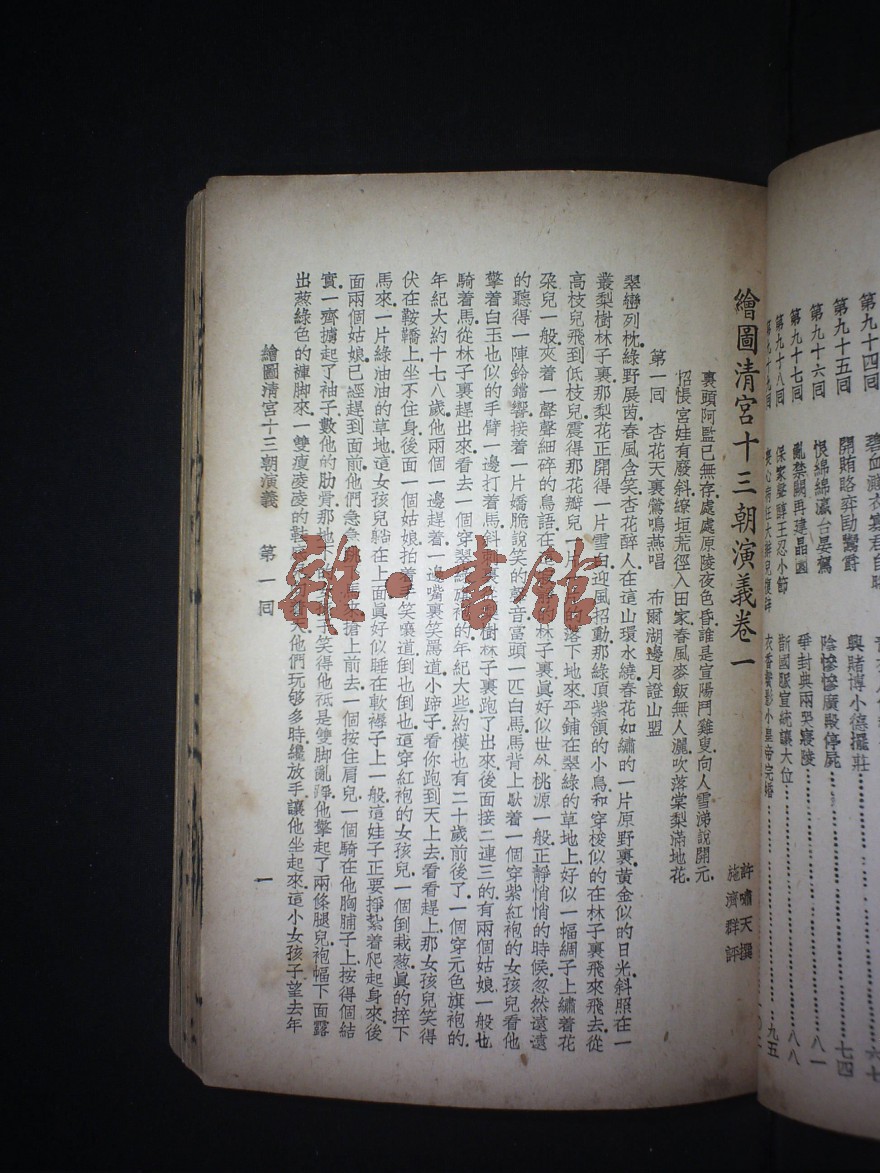 第九十四回
第九十五回 開賄賂弈劻鬻爵 興賭博小德擺莊……七四
第九十六回 恨綿綿瀛台晏駕 陰慘慘廣殿停屍……八一
第九十七回 亂禁闕再建晶園 爭封典兩哭寢陵……八八
第九十八回 保家聲醇王忍小節 斷國脈宣統讓大位……九五
第九十九回 衣香鬢影小皇帝完婚
繪圖清宮十三朝演義卷一
許嘯天撰
施濟群評
裏頭阿監已無存處處原陵夜色昏誰是宣陽門雞叟向人雪涕說開元
招悵宮娃有廢斜繚垣荒徑入田家春風麥飯無人灑吹落棠梨滿地花
第一回 杏花天裏鶯鳴燕唱 布爾湖邊月證山盟
翠巒列枕綠野展茵春風含笑杏花醉人在這山環水繞春花如繡的一片原野裏黃金似的日光斜照在一
叢梨樹林子裏那梨花正開得一片雪白迎風招動那綠頂紫領的小鳥和穿梭似的在林子裏飛來飛去從
高枝兒飛到低枝兒震得那花瓣兒一片落下地來平鋪在翠綠的草地上好似一幅綢子上繡着花
朵兒一般夾着一聲聲細碎的鳥語在林子裏眞好似世外桃源一般正靜悄悄的時候忽然遠遠
的聽得一陣鈴鐺響接着一片嬌脆說笑的聲音當頭一匹白馬馬背上馱着一個穿紫紅袍的女孩兒看他
擎着白玉也似的手臂一邊打着馬斜樹林子裏跑了出來後面接二連三的有兩個姑娘一般也
騎着馬從林子裏趕出來看去一個穿翠綠旗袍的年紀大些約模也有二十歲前後了一個穿元色旗袍的
年紀大約十七八歲他兩個一邊趕着一邊嘴裏笑罵道小蹄子看你跑到天上去看看趕上那女孩兒笑得
伏在鞍鞽上坐不住身後面一個姑娘拍着手笑嚷道倒也倒也這穿紅袍的女孩兒一個倒栽蔥眞的摔下
馬來一片綠油油的草地這女孩兒躺在上面眞好似睡在軟褥子上一般這娃子正要掙紮着爬起身來後
面兩個姑娘已經趕到面前他們急急跳下馬來搶上前去一個按住肩兒一個騎在他胸脯子上按得個結
實一齊擄起了袖子數他的肋骨那地下的女孩子笑得他祇是雙脚亂踭他擎起了兩條腿兒袍幅下面露
出葱綠色的褲脚來一雙瘦凌凌的鞋他們玩够多時纔放手讓他坐起來這小女孩子望去年
繪圖清宮十三朝演義 第一回 一
雜·書館